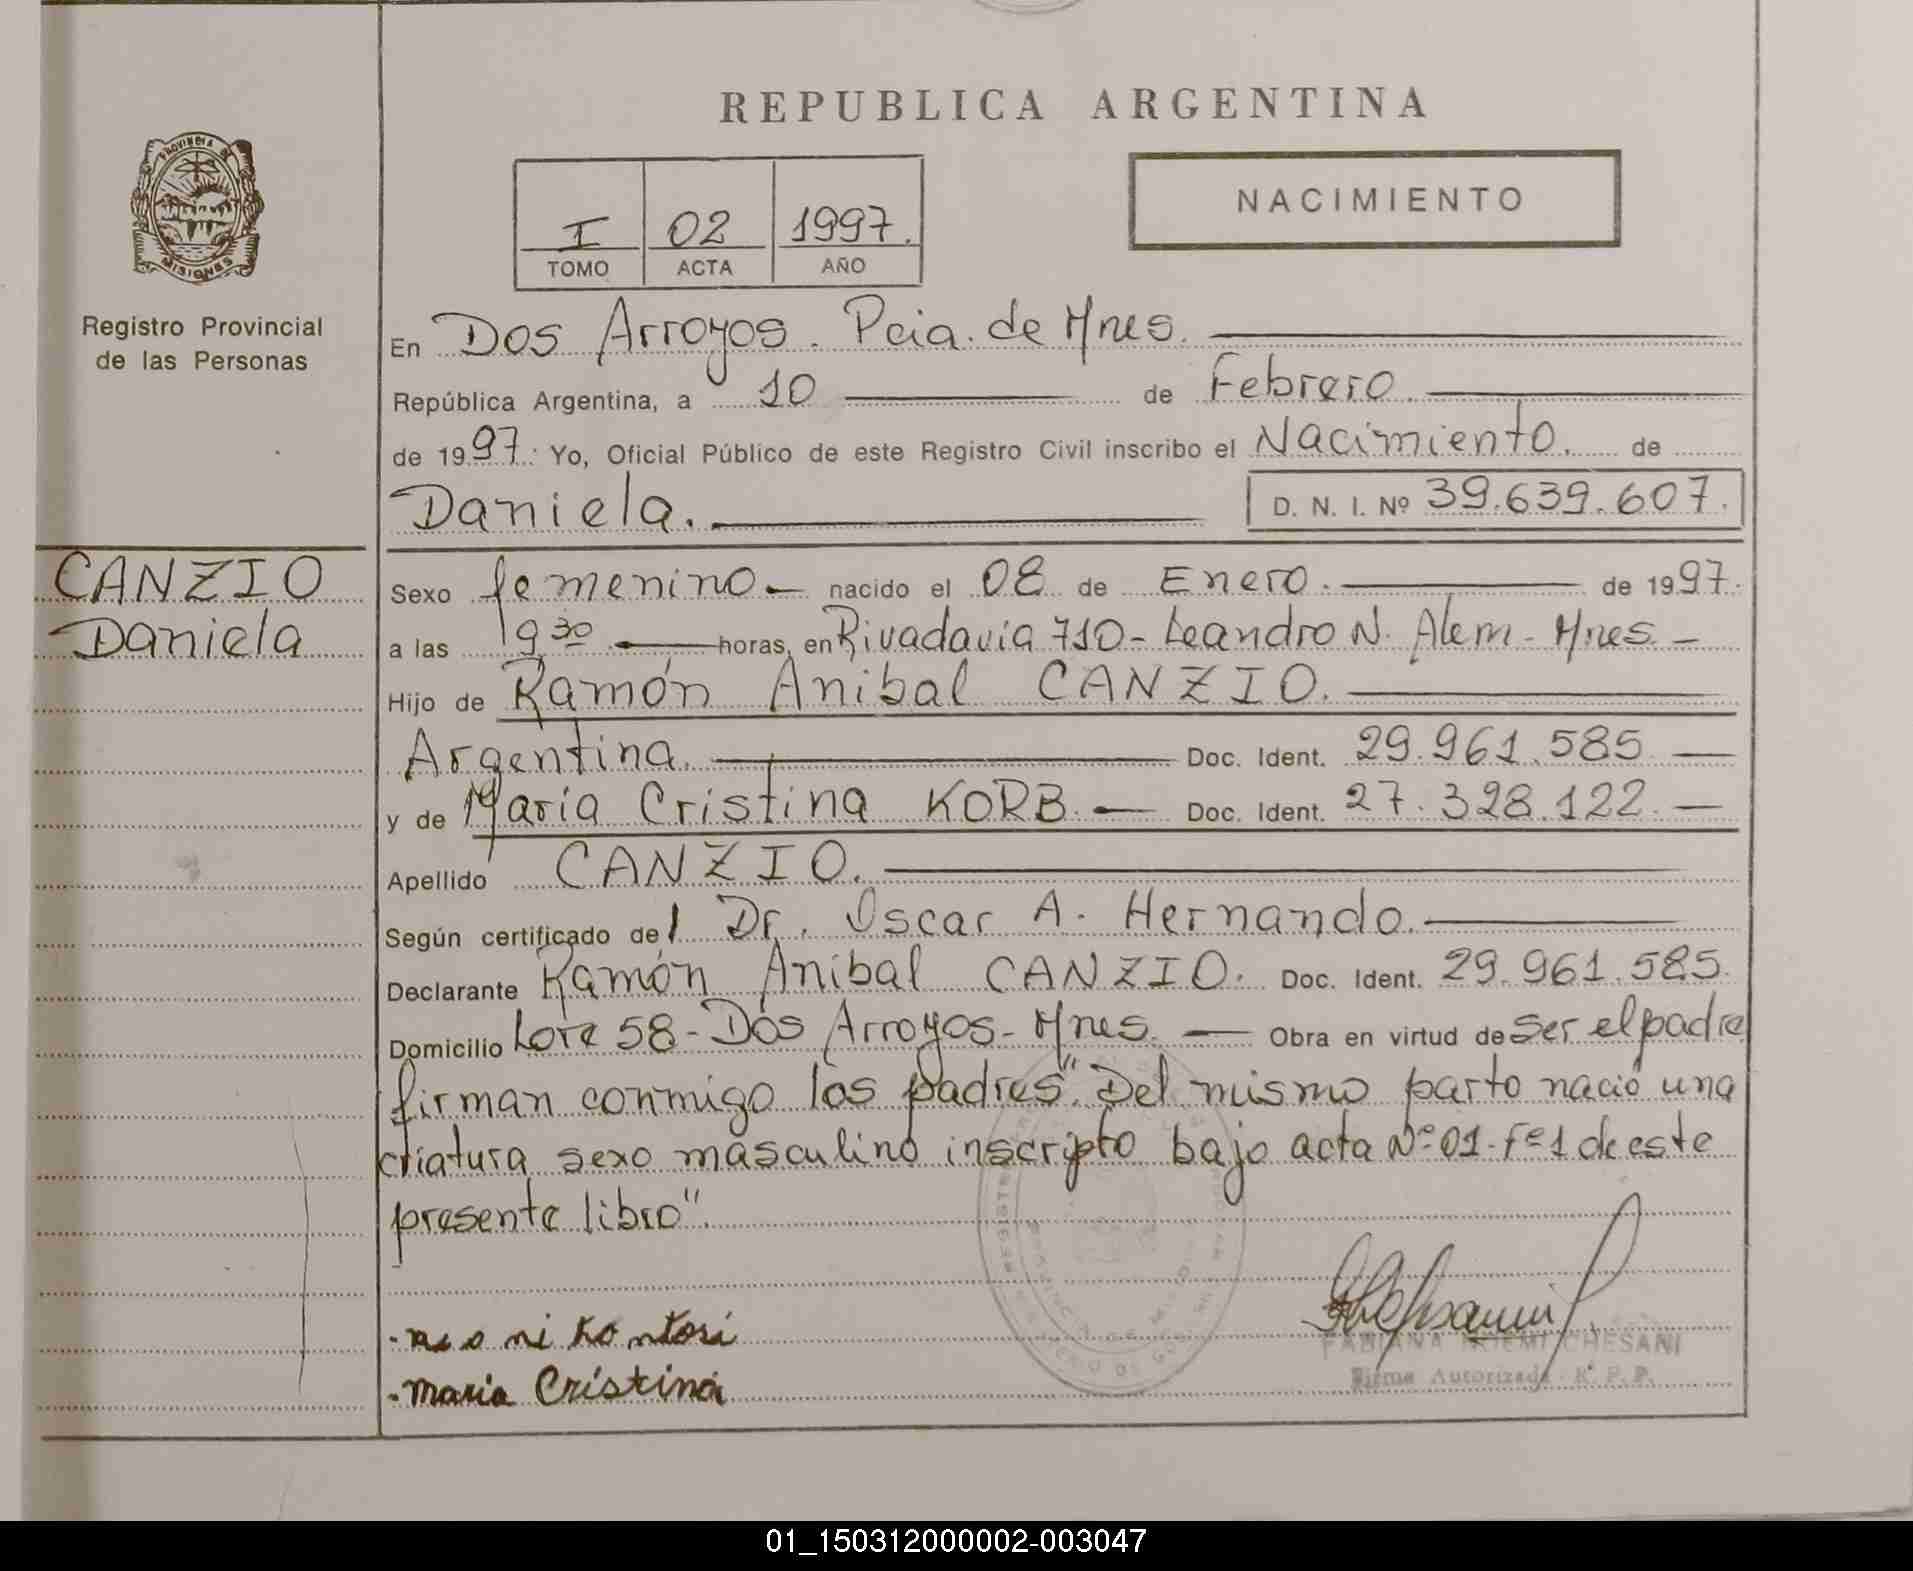 REPUBLICA ARGENTINA
PROVINCIA DE MISIONES
Registro Provincial
de las Personas
I 02 1997.
TOMO ACTA AÑO
NACIMIENTO
En Dos Arroyos. Pcia. de Mnes.
República Argentina, a 10 de Febrero.
de 1997. Yo, Oficial Público de este Registro Civil inscribo el Nacimiento. de
Daniela. D. N. I. Nº 39.639.607.
CANZIO
Daniela
Sexo femenino nacido el 08 de Enero. de 1997.
a las 19 30 horas, en Rivadavia 710 - Leandro N. Alem - Mnes. -
Hijo de Ramón Anibal CANZIO.
Argentina. Doc. Ident. 29.961.585
y de María Cristina KORB. Doc. Ident. 27.328.122.
Apellido CANZIO.
Según certificado del Dr. Oscar A. Hernando.
Declarante Ramón Anibal CANZIO. Doc. Ident. 29.961.585.
Domicilio Lote 58 - Dos Arroyos - Mnes. Obra en virtud de ser el padre
firman conmigo los padres". Del mismo parto nació una
criatura sexo masculino inscripto bajo acta Nº 01 - Fº 1 de este
presente libro".
maria Cristina
FABIANA NOEMI CHESANI
Firma Autorizada - R. P. P.
01_150312000002-003047